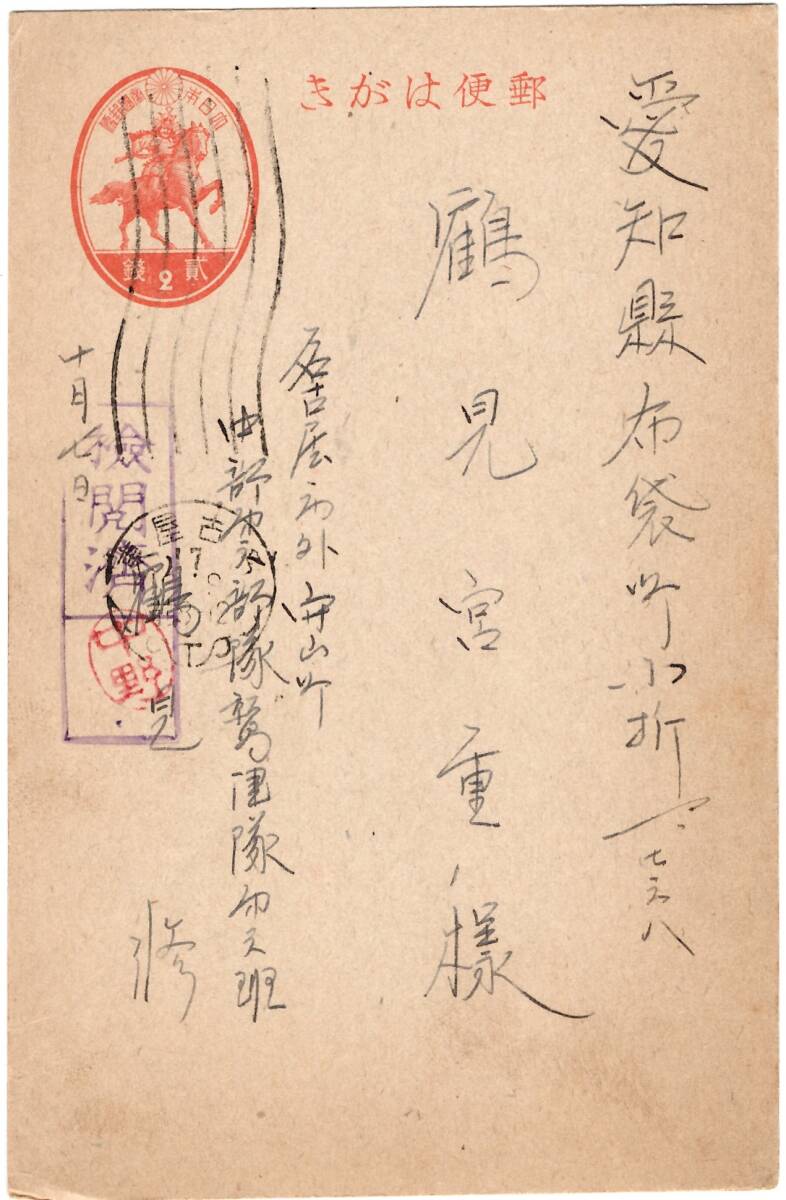 郵便はがき
大日本帝國郵便
貳 2 錢
愛知縣布袋町小折一七六八
鶴見宮重様
名古屋市外守山町
中部第 部隊 隊 班
鶴見 修
十月七日
檢閲済
中野
古屋
17